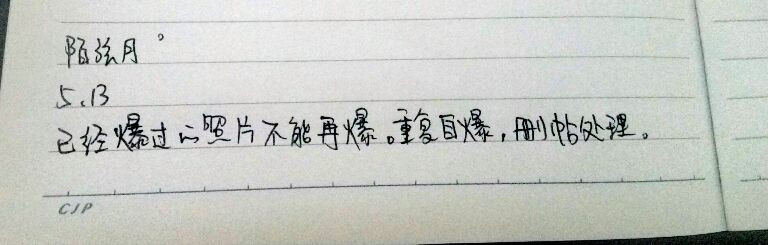 陌弦月。
5.13
已经爆过的照片不能再爆。重复自爆，删帖处理。
CJP